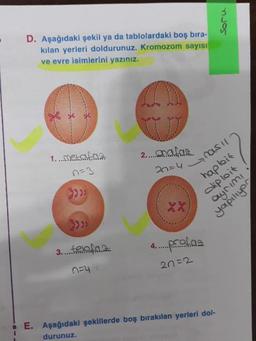 soru
D. Aşağıdaki şekil ya da tablolardaki boş bıra-
kılan yerleri doldurunuz. Kromozom sayısı
ve evre isimlerini yazınız.
1. ...metafaz
n=3
2. ....anafaz
2n=4
nasıl
haploit
diploit
ayrımı
yapılıyor?
3. ....telofaz
n=4
4. ......profaz
2n=2
E. Aşağıdaki şekillerde boş bırakılan yerleri dol-
durunuz.